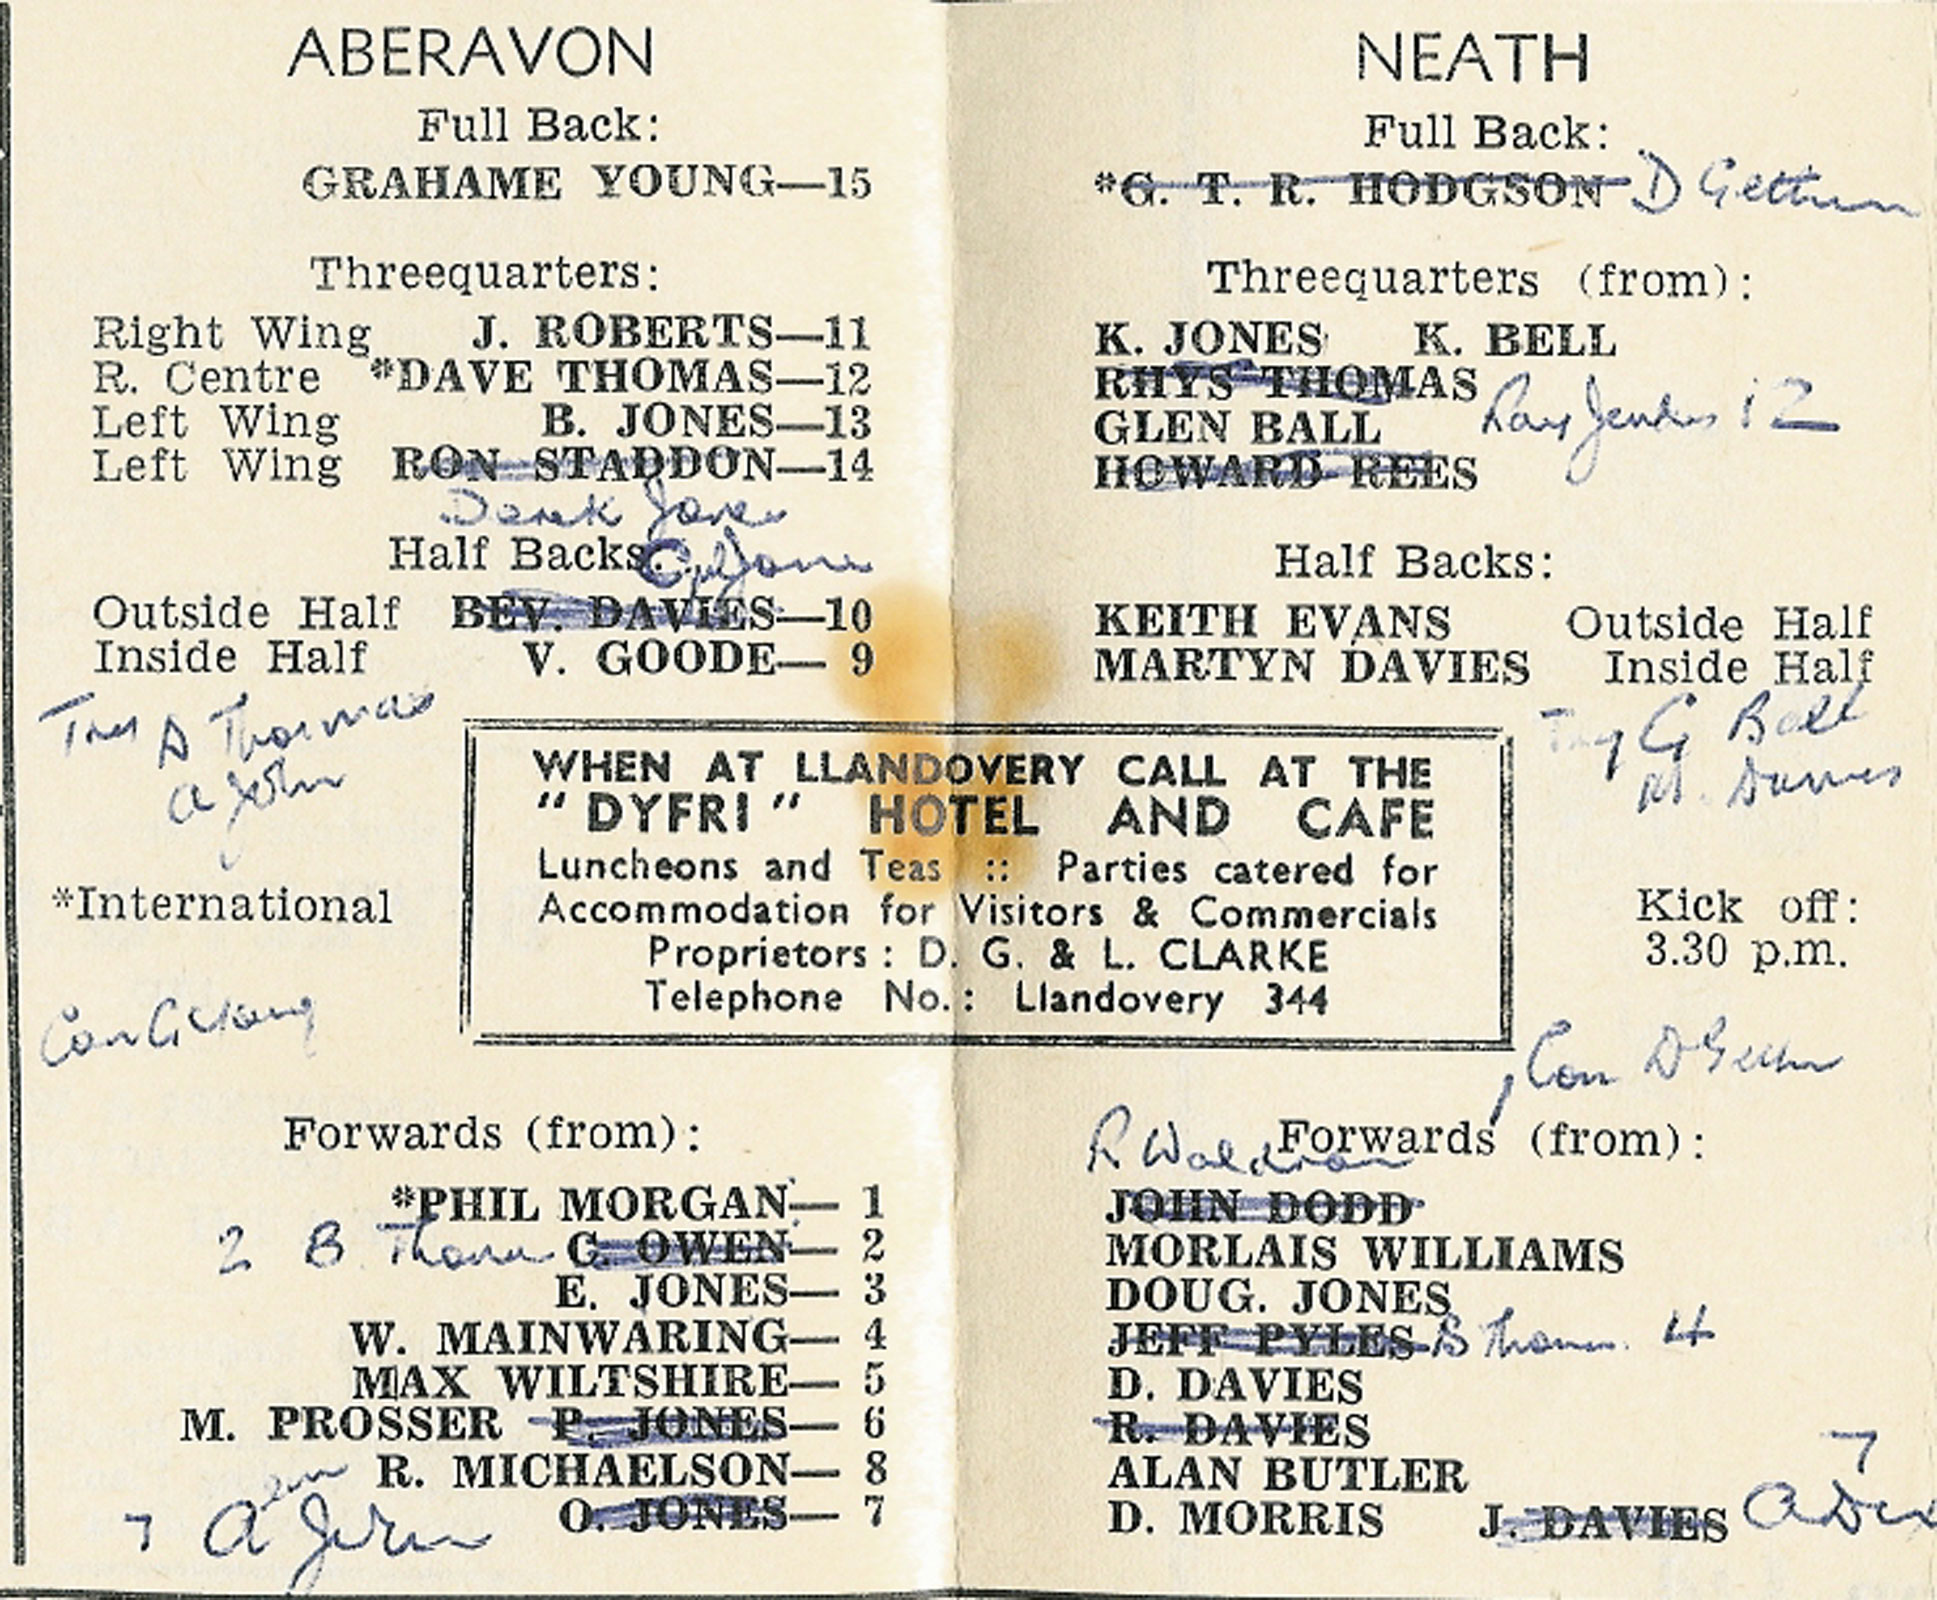 ABERAVON
Full Back:
GRAHAME YOUNG—15
Threequarters:
Right Wing J. ROBERTS—11
R. Centre *DAVE THOMAS—12
Left Wing B. JONES—13
Left Wing RON STADDON—14
Derek Jones
Half Backs:
Outside Half BEV. DAVIES—10
Inside Half V. GOODE— 9
D Thomas
A John
*International
Con G Young
Forwards (from):
*PHIL MORGAN— 1
2 B Thomas G. OWEN— 2
E. JONES— 3
W. MAINWARING— 4
MAX WILTSHIRE— 5
M. PROSSER P. JONES— 6
R. MICHAELSON— 8
O. JONES— 7
7 A John
WHEN AT LLANDOVERY CALL AT THE
"DYFRI" HOTEL AND CAFE
Luncheons and Teas :: Parties catered for
Accommodation for Visitors & Commercials
Proprietors: D. G. & L. CLARKE
Telephone No.: Llandovery 344
NEATH
Full Back:
*G. T. R. HODGSON D Gethin
Threequarters (from):
K. JONES K. BELL
RHYS THOMAS
GLEN BALL Ray Jenkins 12
HOWARD REES
Half Backs:
KEITH EVANS Outside Half
MARTYN DAVIES Inside Half
Try G Ball
M. Davies
Kick off:
3.30 p.m.
Con D Gethin
Forwards (from):
R Waldron
JOHN DODD
MORLAIS WILLIAMS
DOUG. JONES
JEFF PYLES B Thomas 4
D. DAVIES
R. DAVIES
ALAN BUTLER
7
D. MORRIS J. DAVIES